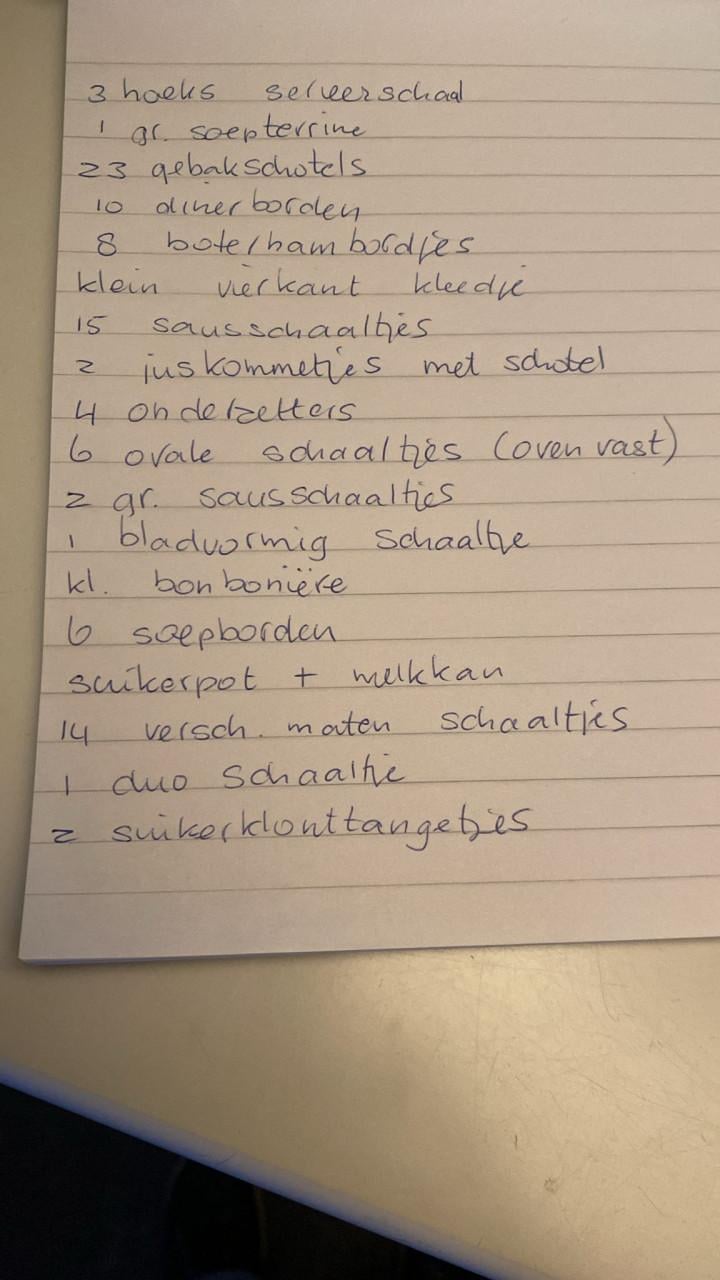 3 hoeks serveerschaal
1 gr. soepterrine
23 gebakschotels
10 dinerborden
8 boterhambordjes
klein vierkant kleedje
15 sausschaaltjes
2 juskommetjes met schotel
4 onderzetters
6 ovale schaaltjes (ovenvast)
2 gr. sausschaaltjes
1 bladvormig schaaltje
kl. bonbonière
6 soepborden
suikerpot + melkkan
14 versch. maten schaaltjes
1 duo schaaltje
2 suikerklonttangetjes